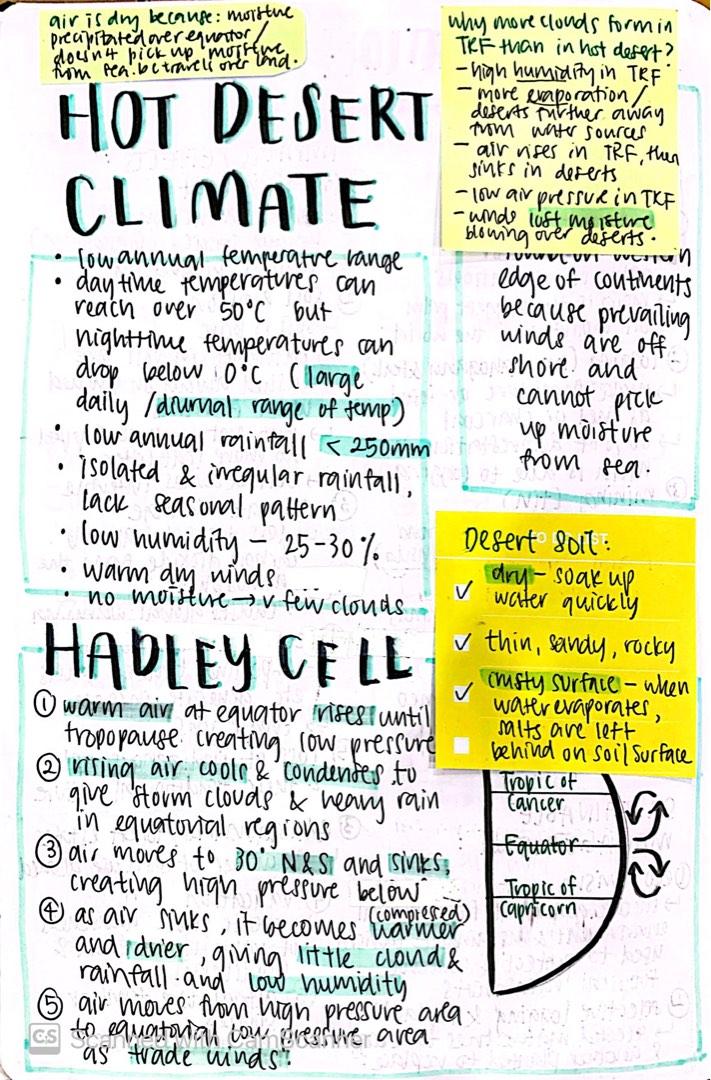 air is dry because: moisture
precipitated over equator/
doesn't pick up moisture
from sea bc travels over land.
why more clouds form in
TRF than in hot desert?
- high humidity in TRF
- more evaporation/
deserts further away
from water sources
- air rises in TRF, then
sinks in deserts
- low air pressure in TRF
- winds lost moisture
blowing over deserts.
HOT DESERT
CLIMATE
• low annual temperature range
• daytime temperatures can
reach over 50°C but
nighttime temperatures can
drop below 0°C (large
daily /diurnal range of temp)
• low annual rainfall < 250mm
• isolated & irregular rainfall,
lack seasonal pattern
• low humidity - 25-30%
• warm dry winds
• no moisture → v few clouds
found on western
edge of continents
because prevailing
winds are off
shore and
cannot pick
up moisture
from sea.
Desert Soil:
dry - soak up
water quickly
thin, sandy, rocky
crusty surface - when
water evaporates,
salts are left
behind on soil surface
HADLEY CELL
① warm air at equator rises until
tropopause creating low pressure
② rising air cools & condenses to
give storm clouds & heavy rain
in equatorial regions
③ air moves to 30° N&S and sinks,
creating high pressure below
④ as air sinks, it becomes warmer (compressed)
and drier, giving little cloud &
rainfall and low humidity
⑤ air moves from high pressure area
to equatorial low pressure area
as trade winds.
Tropic of
Cancer
Equator
Tropic of
Capricorn
CS Scanned with CamScanner